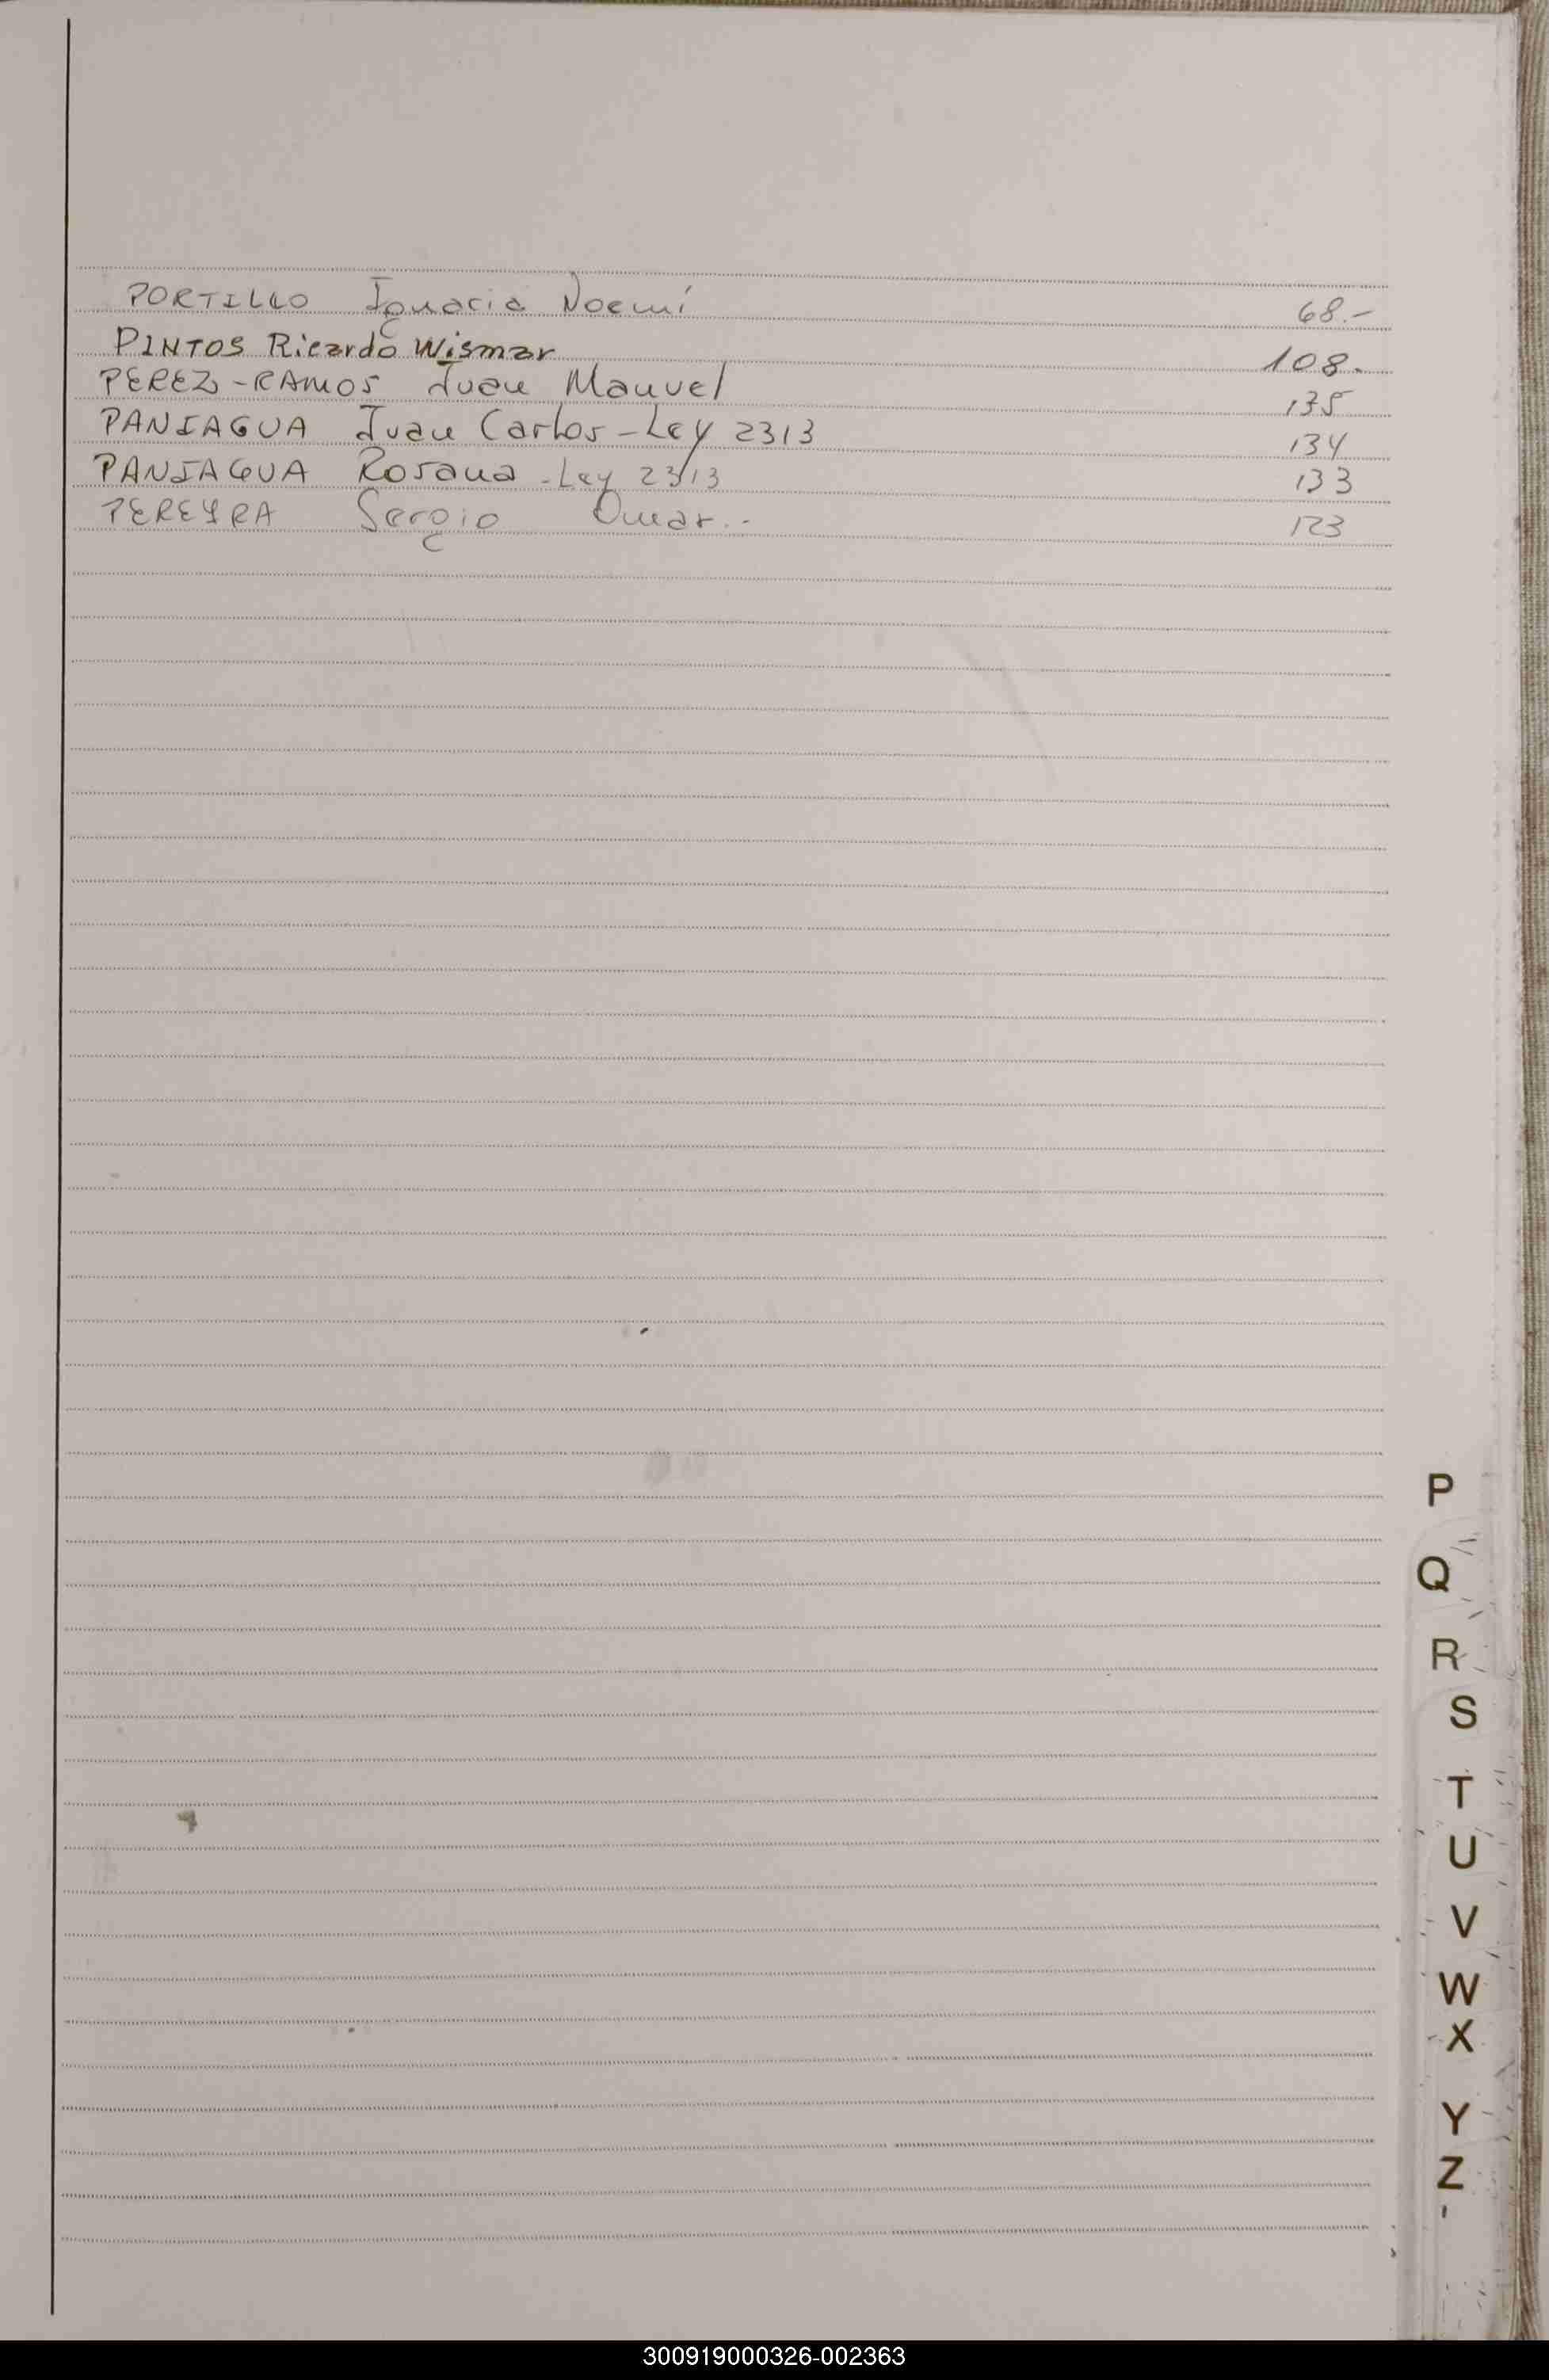 PORTILLO Ignacia Noemí 68.-
PINTOS Ricardo Wismar 108.
PEREZ-RAMOS Juan Manuel 135
PANIAGUA Juan Carlos - Ley 2313 134
PANIAGUA Rosana - Ley 2313 133
PEREYRA Sergio Omar.- 123
P
Q
R
S
T
U
V
W
X
Y
Z
300919000326-002363